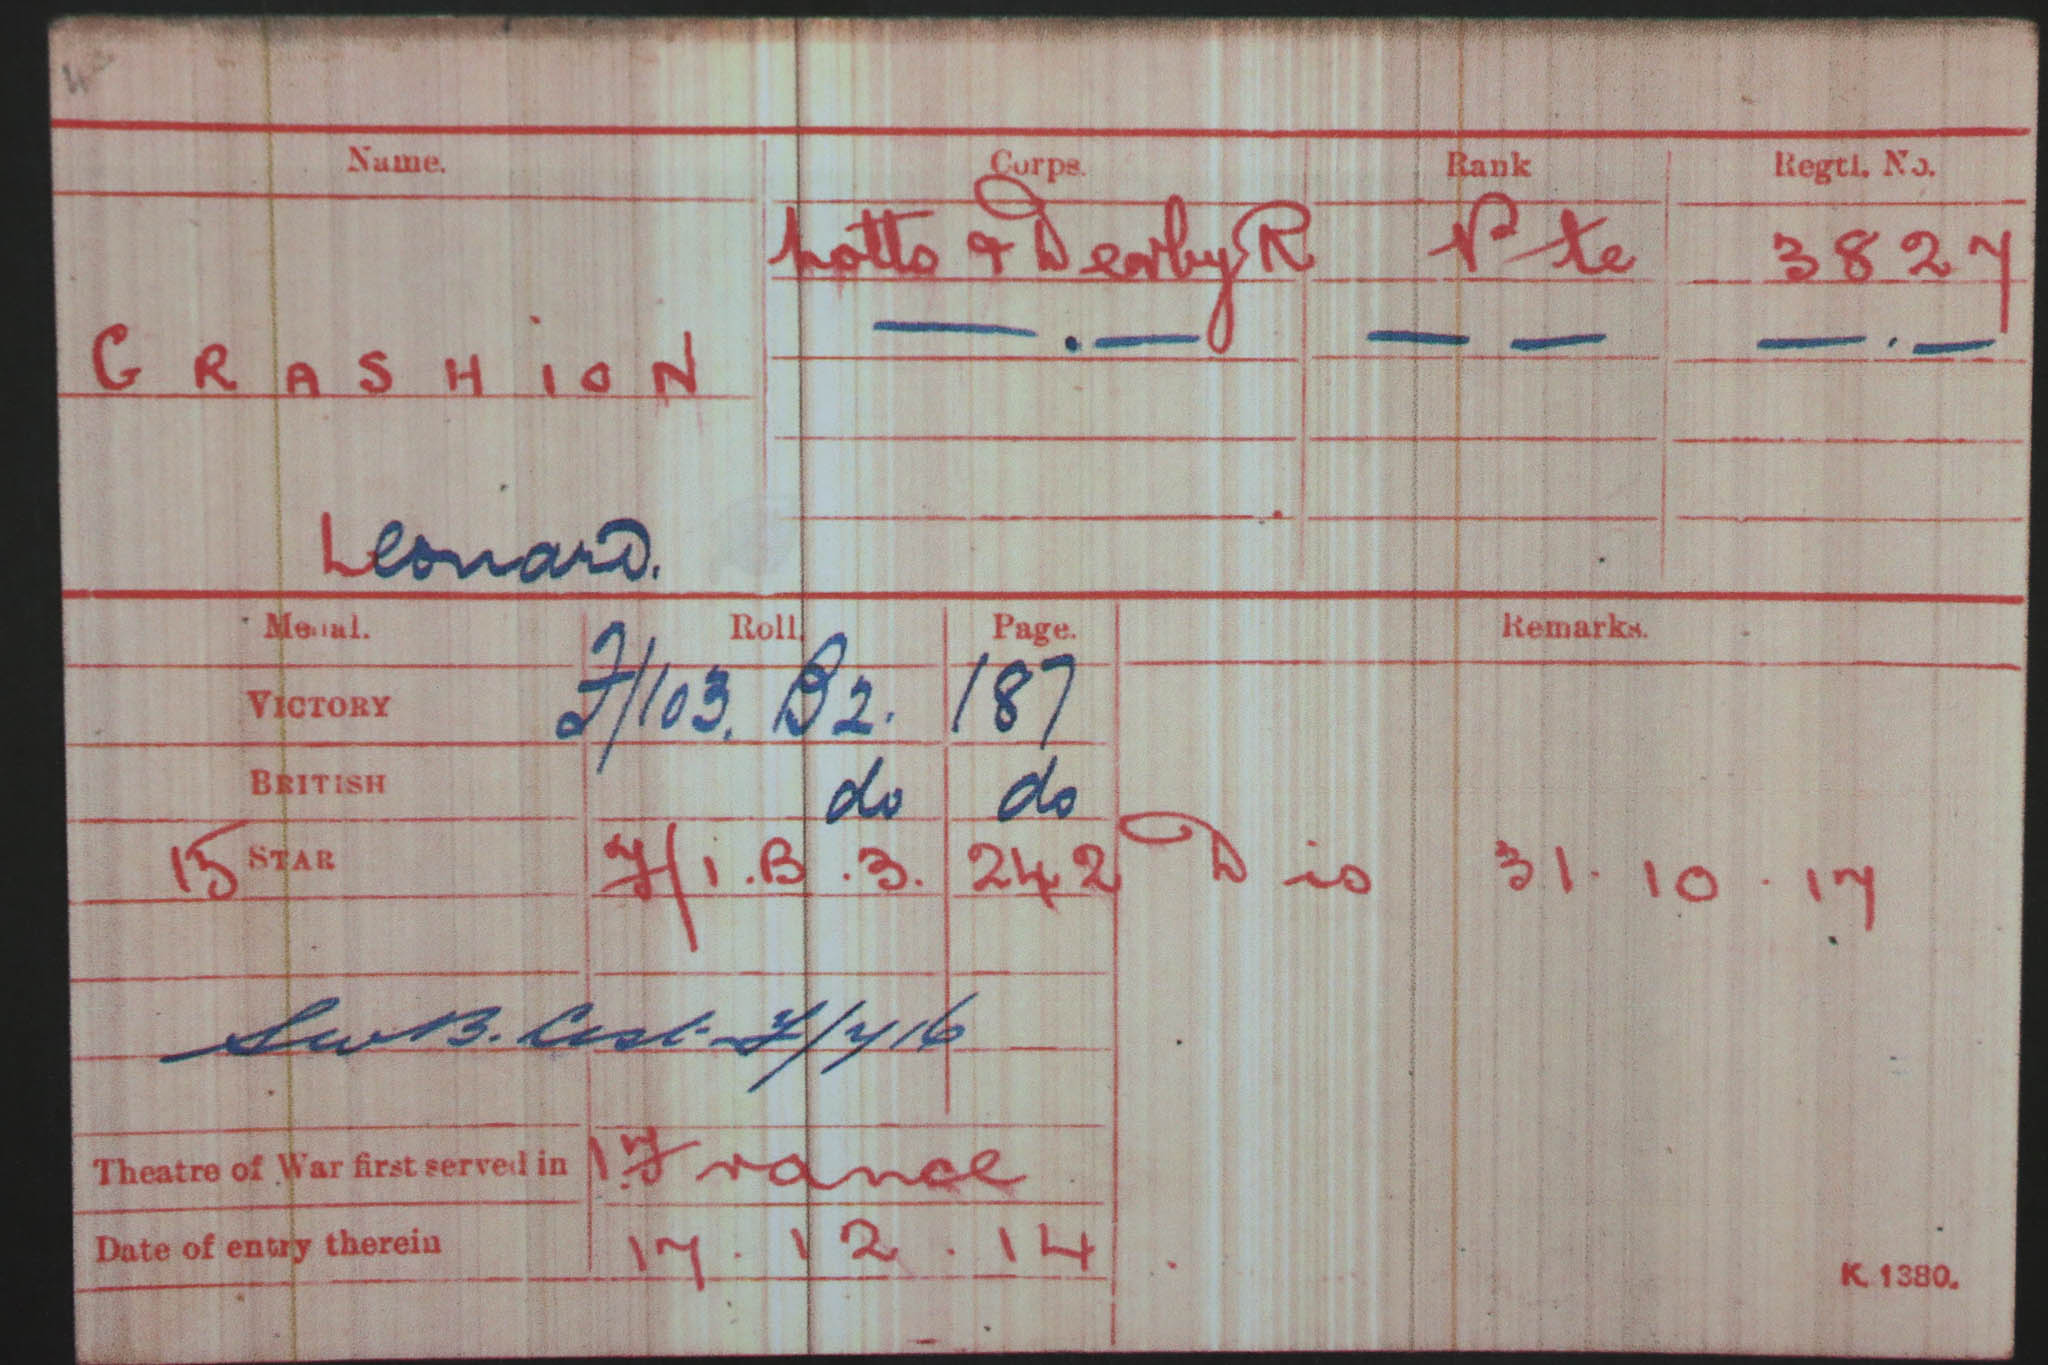 Name. Corps. Rank Regtl. No.
Notts & Derby R Pte 3827
GRASHION
Leonard.
Medal. Roll Page. Remarks.
VICTORY J/103. B2. 187
BRITISH do do
15 STAR J/1.B.3. 242 Dis 31.10.17
SWB. List J/716
Theatre of War first served in 1. France
Date of entry therein 17.12.14
K. 1380.